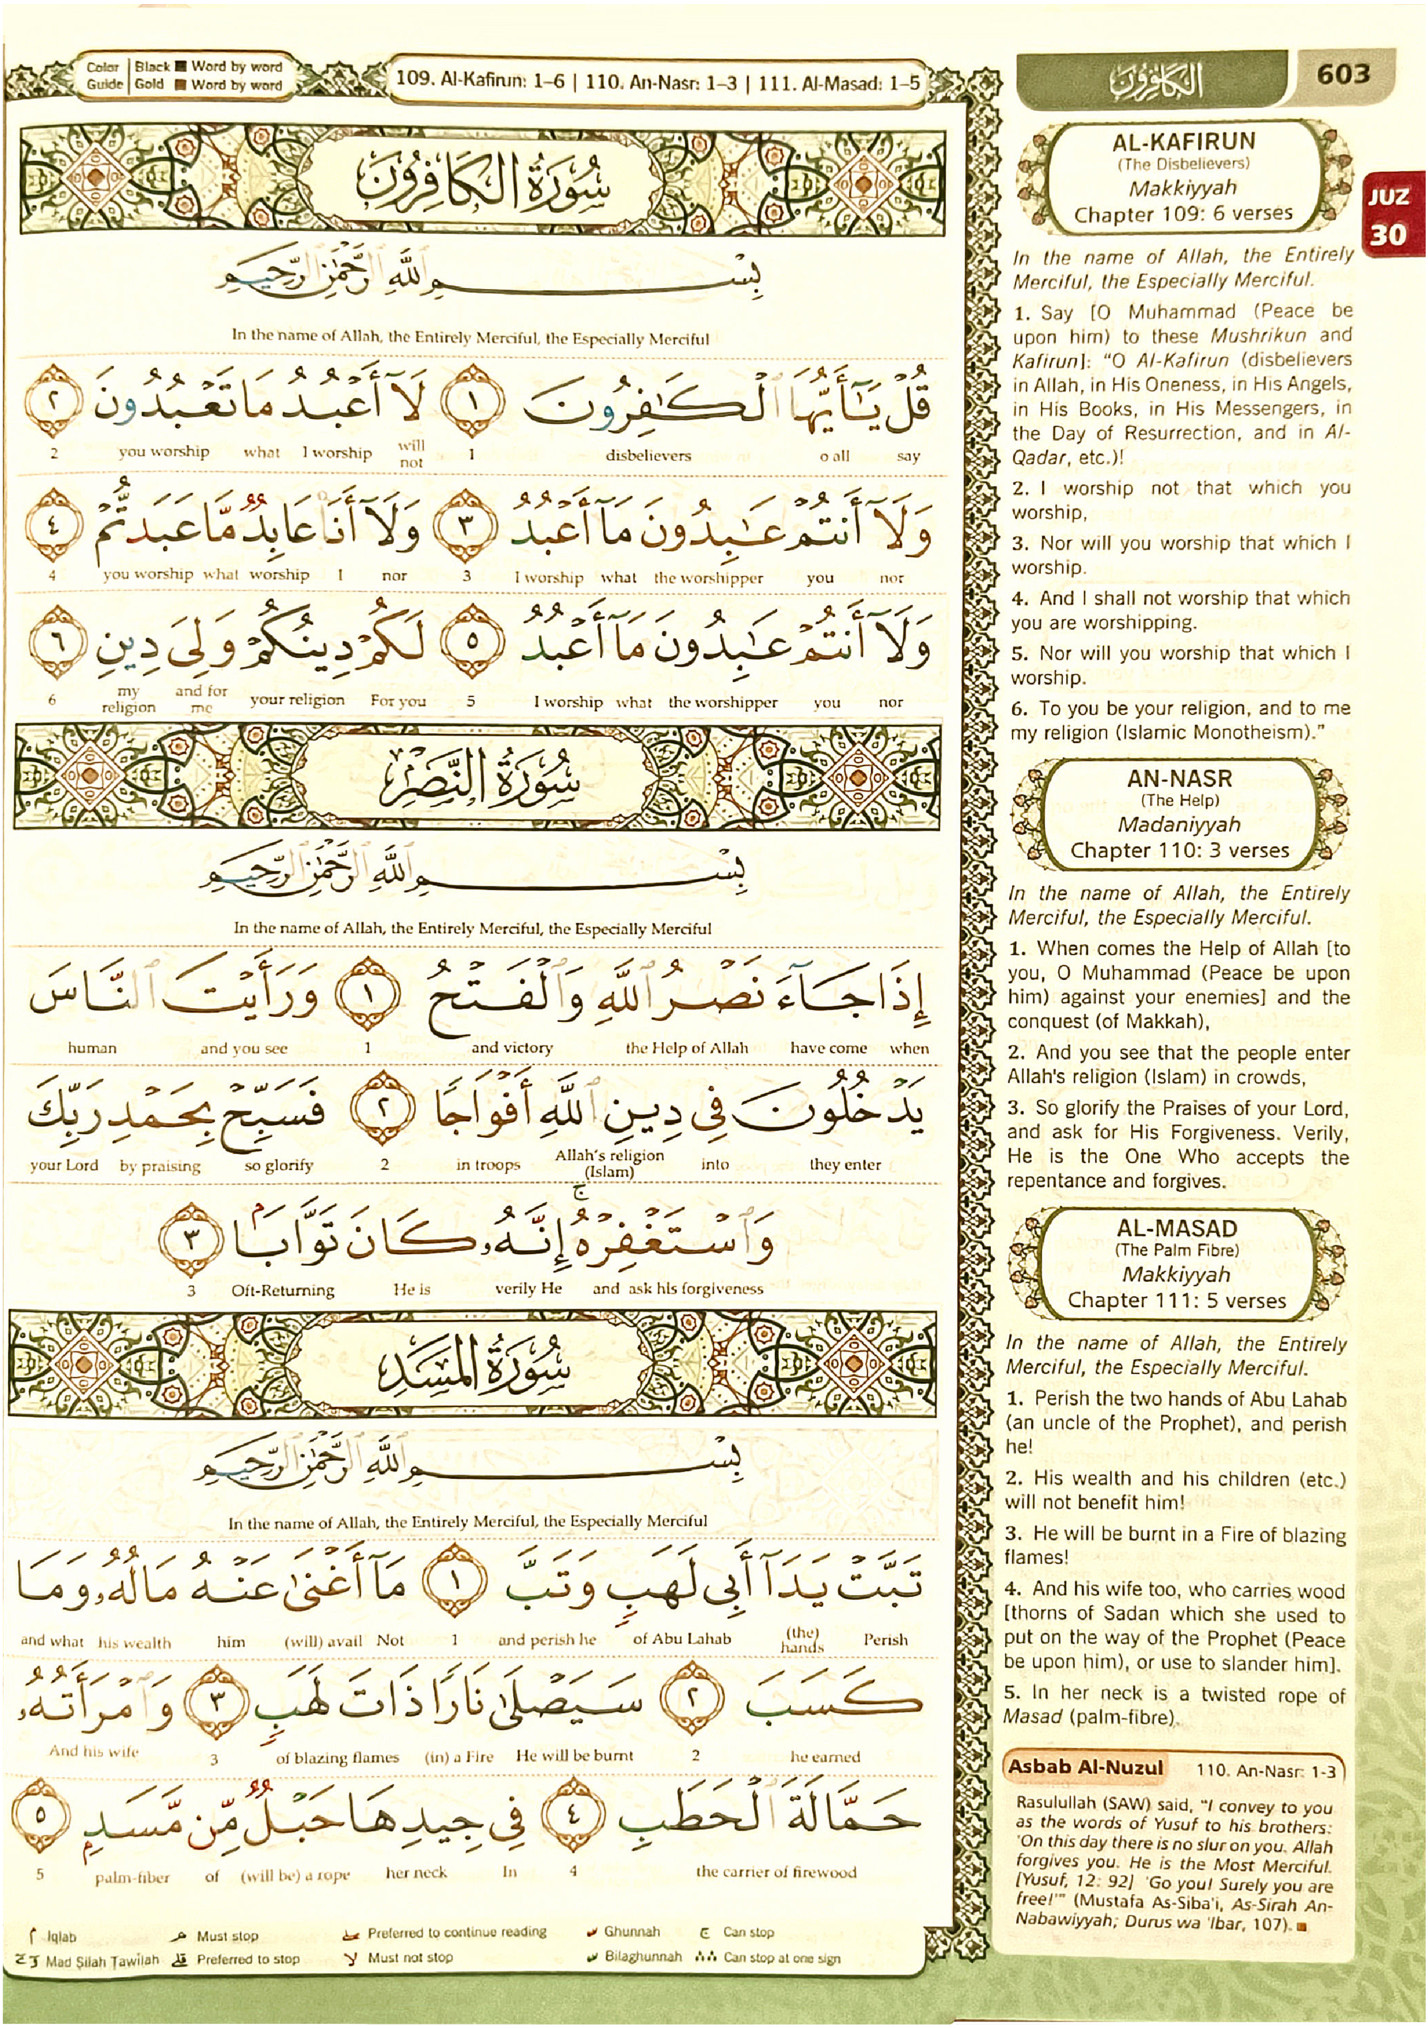 Color Guide | Black ■ Word by word
Gold ■ Word by word
109. Al-Kafirun: 1–6 | 110. An-Nasr: 1–3 | 111. Al-Masad: 1–5
سُورَةُ الكَافِرُونَ
بِسْمِ ٱللَّهِ ٱلرَّحْمَٰنِ ٱلرَّحِيمِ
In the name of Allah, the Entirely Merciful, the Especially Merciful
قُلْ يَٰٓأَيُّهَا ٱلْكَٰفِرُونَ ١ لَآ أَعْبُدُ مَا تَعْبُدُونَ ٢
2 you worship what I worship will not 1 disbelievers o all say
وَلَآ أَنتُمْ عَٰبِدُونَ مَآ أَعْبُدُ ٣ وَلَآ أَنَا۠ عَابِدٌ مَّا عَبَدتُّمْ ٤
4 you worship what worship I nor 3 I worship what the worshipper you nor
وَلَآ أَنتُمْ عَٰبِدُونَ مَآ أَعْبُدُ ٥ لَكُمْ دِينُكُمْ وَلِىَ دِينِ ٦
6 my religion and for me your religion For you 5 I worship what the worshipper you nor
سُورَةُ النَّصْرِ
بِسْمِ ٱللَّهِ ٱلرَّحْمَٰنِ ٱلرَّحِيمِ
In the name of Allah, the Entirely Merciful, the Especially Merciful
إِذَا جَآءَ نَصْرُ ٱللَّهِ وَٱلْفَتْحُ ١ وَرَأَيْتَ ٱلنَّاسَ
human and you see 1 and victory the Help of Allah have come when
يَدْخُلُونَ فِى دِينِ ٱللَّهِ أَفْوَاجًا ٢ فَسَبِّحْ بِحَمْدِ رَبِّكَ
your Lord by praising so glorify 2 in troops Allah's religion (Islam) into they enter
وَٱسْتَغْفِرْهُ ۚ إِنَّهُۥ كَانَ تَوَّابًۢا ٣
3 Oft-Returning He is verily He and ask his forgiveness
سُورَةُ المَسَدِ
بِسْمِ ٱللَّهِ ٱلرَّحْمَٰنِ ٱلرَّحِيمِ
In the name of Allah, the Entirely Merciful, the Especially Merciful
تَبَّتْ يَدَآ أَبِى لَهَبٍ وَتَبَّ ١ مَآ أَغْنَىٰ عَنْهُ مَالُهُۥ وَمَا
and what his wealth him (will) avail Not 1 and perish he of Abu Lahab (the) hands Perish
كَسَبَ ٢ سَيَصْلَىٰ نَارًا ذَاتَ لَهَبٍ ٣ وَٱمْرَأَتُهُۥ
And his wife 3 of blazing flames (in) a Fire He will be burnt 2 he earned
حَمَّالَةَ ٱلْحَطَبِ ٤ فِى جِيدِهَا حَبْلٌ مِّن مَّسَدٍۭ ٥
5 palm-fiber of (will be) a rope her neck In 4 the carrier of firewood
Iqlab Must stop Preferred to continue reading Ghunnah Can stop
Mad Silah Tawilah Preferred to stop Must not stop Bilaghunnah Can stop at one sign
الكَافِرُونَ
603
JUZ
30
AL-KAFIRUN
(The Disbelievers)
Makkiyyah
Chapter 109: 6 verses
In the name of Allah, the Entirely
Merciful, the Especially Merciful.
1. Say [O Muhammad (Peace be
upon him) to these Mushrikun and
Kafirun]: “O Al-Kafirun (disbelievers
in Allah, in His Oneness, in His Angels,
in His Books, in His Messengers, in
the Day of Resurrection, and in Al-
Qadar, etc.)!
2. I worship not that which you
worship,
3. Nor will you worship that which I
worship.
4. And I shall not worship that which
you are worshipping.
5. Nor will you worship that which I
worship.
6. To you be your religion, and to me
my religion (Islamic Monotheism).”
AN-NASR
(The Help)
Madaniyyah
Chapter 110: 3 verses
In the name of Allah, the Entirely
Merciful, the Especially Merciful.
1. When comes the Help of Allah [to
you, O Muhammad (Peace be upon
him) against your enemies] and the
conquest (of Makkah),
2. And you see that the people enter
Allah's religion (Islam) in crowds,
3. So glorify the Praises of your Lord,
and ask for His Forgiveness. Verily,
He is the One Who accepts the
repentance and forgives.
AL-MASAD
(The Palm Fibre)
Makkiyyah
Chapter 111: 5 verses
In the name of Allah, the Entirely
Merciful, the Especially Merciful.
1. Perish the two hands of Abu Lahab
(an uncle of the Prophet), and perish
he!
2. His wealth and his children (etc.)
will not benefit him!
3. He will be burnt in a Fire of blazing
flames!
4. And his wife too, who carries wood
[thorns of Sadan which she used to
put on the way of the Prophet (Peace
be upon him), or use to slander him].
5. In her neck is a twisted rope of
Masad (palm-fibre).
Asbab Al-Nuzul 110. An-Nasr: 1-3
Rasulullah (SAW) said, “I convey to you
as the words of Yusuf to his brothers:
‘On this day there is no slur on you. Allah
forgives you. He is the Most Merciful.
[Yusuf, 12: 92] ‘Go you! Surely you are
free!’” (Mustafa As-Siba'i, As-Sirah An-
Nabawiyyah; Durus wa 'Ibar, 107). ■